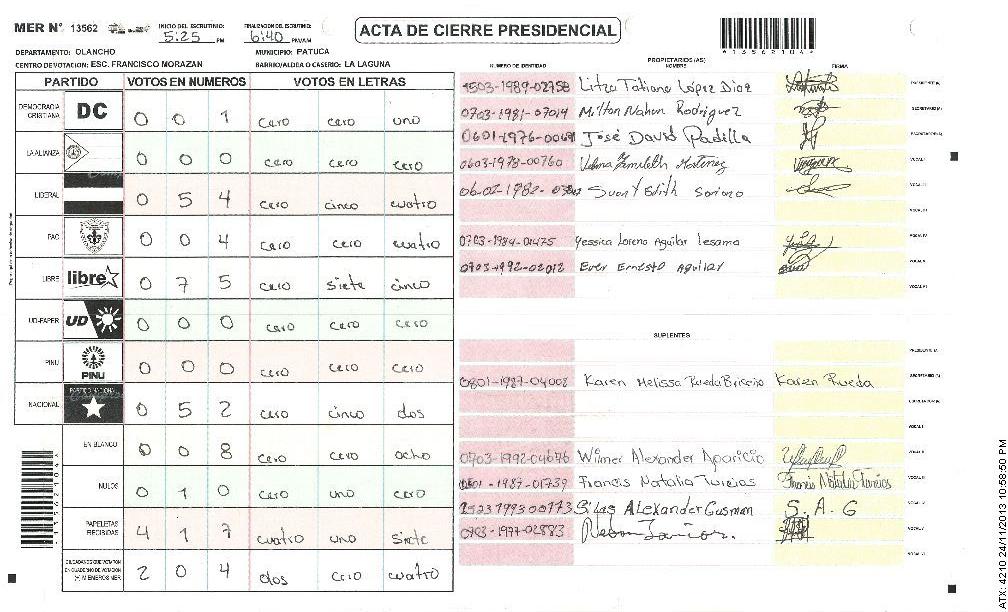 MER Nº 13562
INICIO DEL ESCRUTINIO: 5:25 PM
FINALIZACION DEL ESCRUTINIO: 6:40 PM/AM
ACTA DE CIERRE PRESIDENCIAL
DEPARTAMENTO: OLANCHO MUNICIPIO: PATUCA
CENTRO DE VOTACION: ESC. FRANCISCO MORAZAN BARRIO/ALDEA O CASERIO: LA LAGUNA
PARTIDO VOTOS EN NUMEROS VOTOS EN LETRAS
DEMOCRACIA CRISTIANA DC 0 0 1 cero cero uno
LA ALIANZA 0 0 0 cero cero cero
LIBERAL 0 5 4 cero cinco cuatro
PAC 0 0 4 cero cero cuatro
LIBRE libre 0 7 5 cero siete cinco
UD-FAPER UD 0 0 0 cero cero cero
PINU PINU 0 0 0 cero cero cero
NACIONAL PARTIDO NACIONAL 0 5 2 cero cinco dos
EN BLANCO 0 0 8 cero cero ocho
NULOS 0 1 0 cero uno cero
PAPELETAS RECIBIDAS 4 1 7 cuatro uno siete
CIUDADANOS QUE VOTARON EN CUADERNO DE VOTACION (+) MIEMBROS MER 2 0 4 dos cero cuatro
PROPIETARIOS (AS)
NUMERO DE IDENTIDAD NOMBRE FIRMA
1503-1989-02758 Litza Tatiana López Diaz PRESIDENTE (A)
0703-1981-07014 Milton Nahun Rodriguez SECRETARIO (A)
0601-1976-00691 José David Padilla ESCRUTADOR (A)
0603-1978-00760 Martinez VOCAL I
06-02-1982- Edith Soriano VOCAL II
VOCAL III
0703-1984-01475 Yessica Lorena Aguilar Lesama VOCAL IV
0703-1992-02012 Ever Ernesto Aguilar VOCAL V
VOCAL VI
SUPLENTES
PRESIDENTE (A)
0801-1987-04008 Karen Melissa Rueda Briceño Karen Rueda SECRETARIO (A)
ESCRUTADOR (A)
VOCAL I
0703-1992-04676 Wilmer Alexander Aparicio VOCAL II
-1987-01739 Francis Natalia Turcios Francis Natalia Turcios VOCAL III
1523199300773 Silas Alexander Gusman S. A. G VOCAL IV
0703-1997-02883 VOCAL V
VOCAL VI
ATX: 4210 24/11/2013 10:58:50 PM